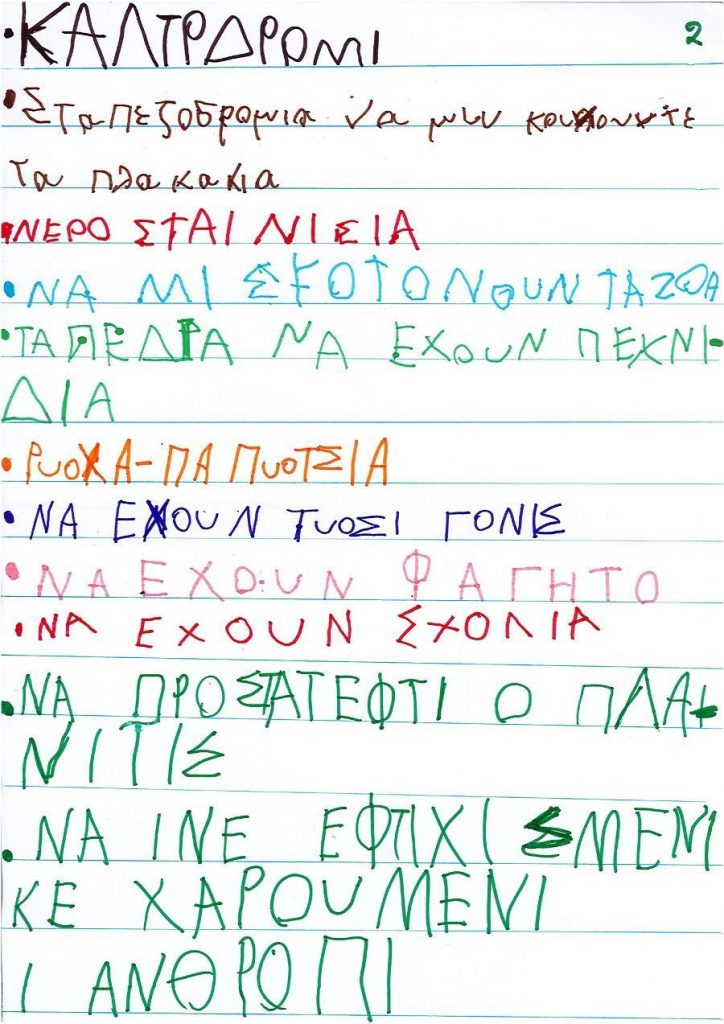 2
• ΚΑΛΤΡΔΡΟΜΙ
• Σταπεζοδρομια να μιν κουνουντε
τα πλακακια
• ΝΕΡΟ ΣΤΑΙ ΝΙΣΙΑ
• ΝΑ ΜΙ ΣΚΟΤΟΝΟΥΝ ΤΑ ΖΟΑ
• ΤΑ ΠΕΔΙΑ ΝΑ ΕΧΟΥΝ ΠΕΧΝΙ-
ΔΙΑ
• ΡΥΟΧΑ-ΠΑ ΠΥΟΤΣΙΑ
• ΝΑ ΕΧΟΥΝ ΤΥΟΣΙ ΓΟΝΙΣ
• ΝΑ ΕΧΟΥΝ ΦΑΓΗΤΟ
• ΝΑ ΕΧΟΥΝ ΣΧΟΛΙΑ
• ΝΑ ΠΡΟΣΤΑΤΕΦΤΙ Ο ΠΛΑ-
ΝΙΤΙΣ
• ΝΑ ΙΝΕ ΕΦΤΙΧΙΣΜΕΝΙ
ΚΕ ΧΑΡΟΥΜΕΝΙ
Ι ΑΝΘΡΟΠΙ